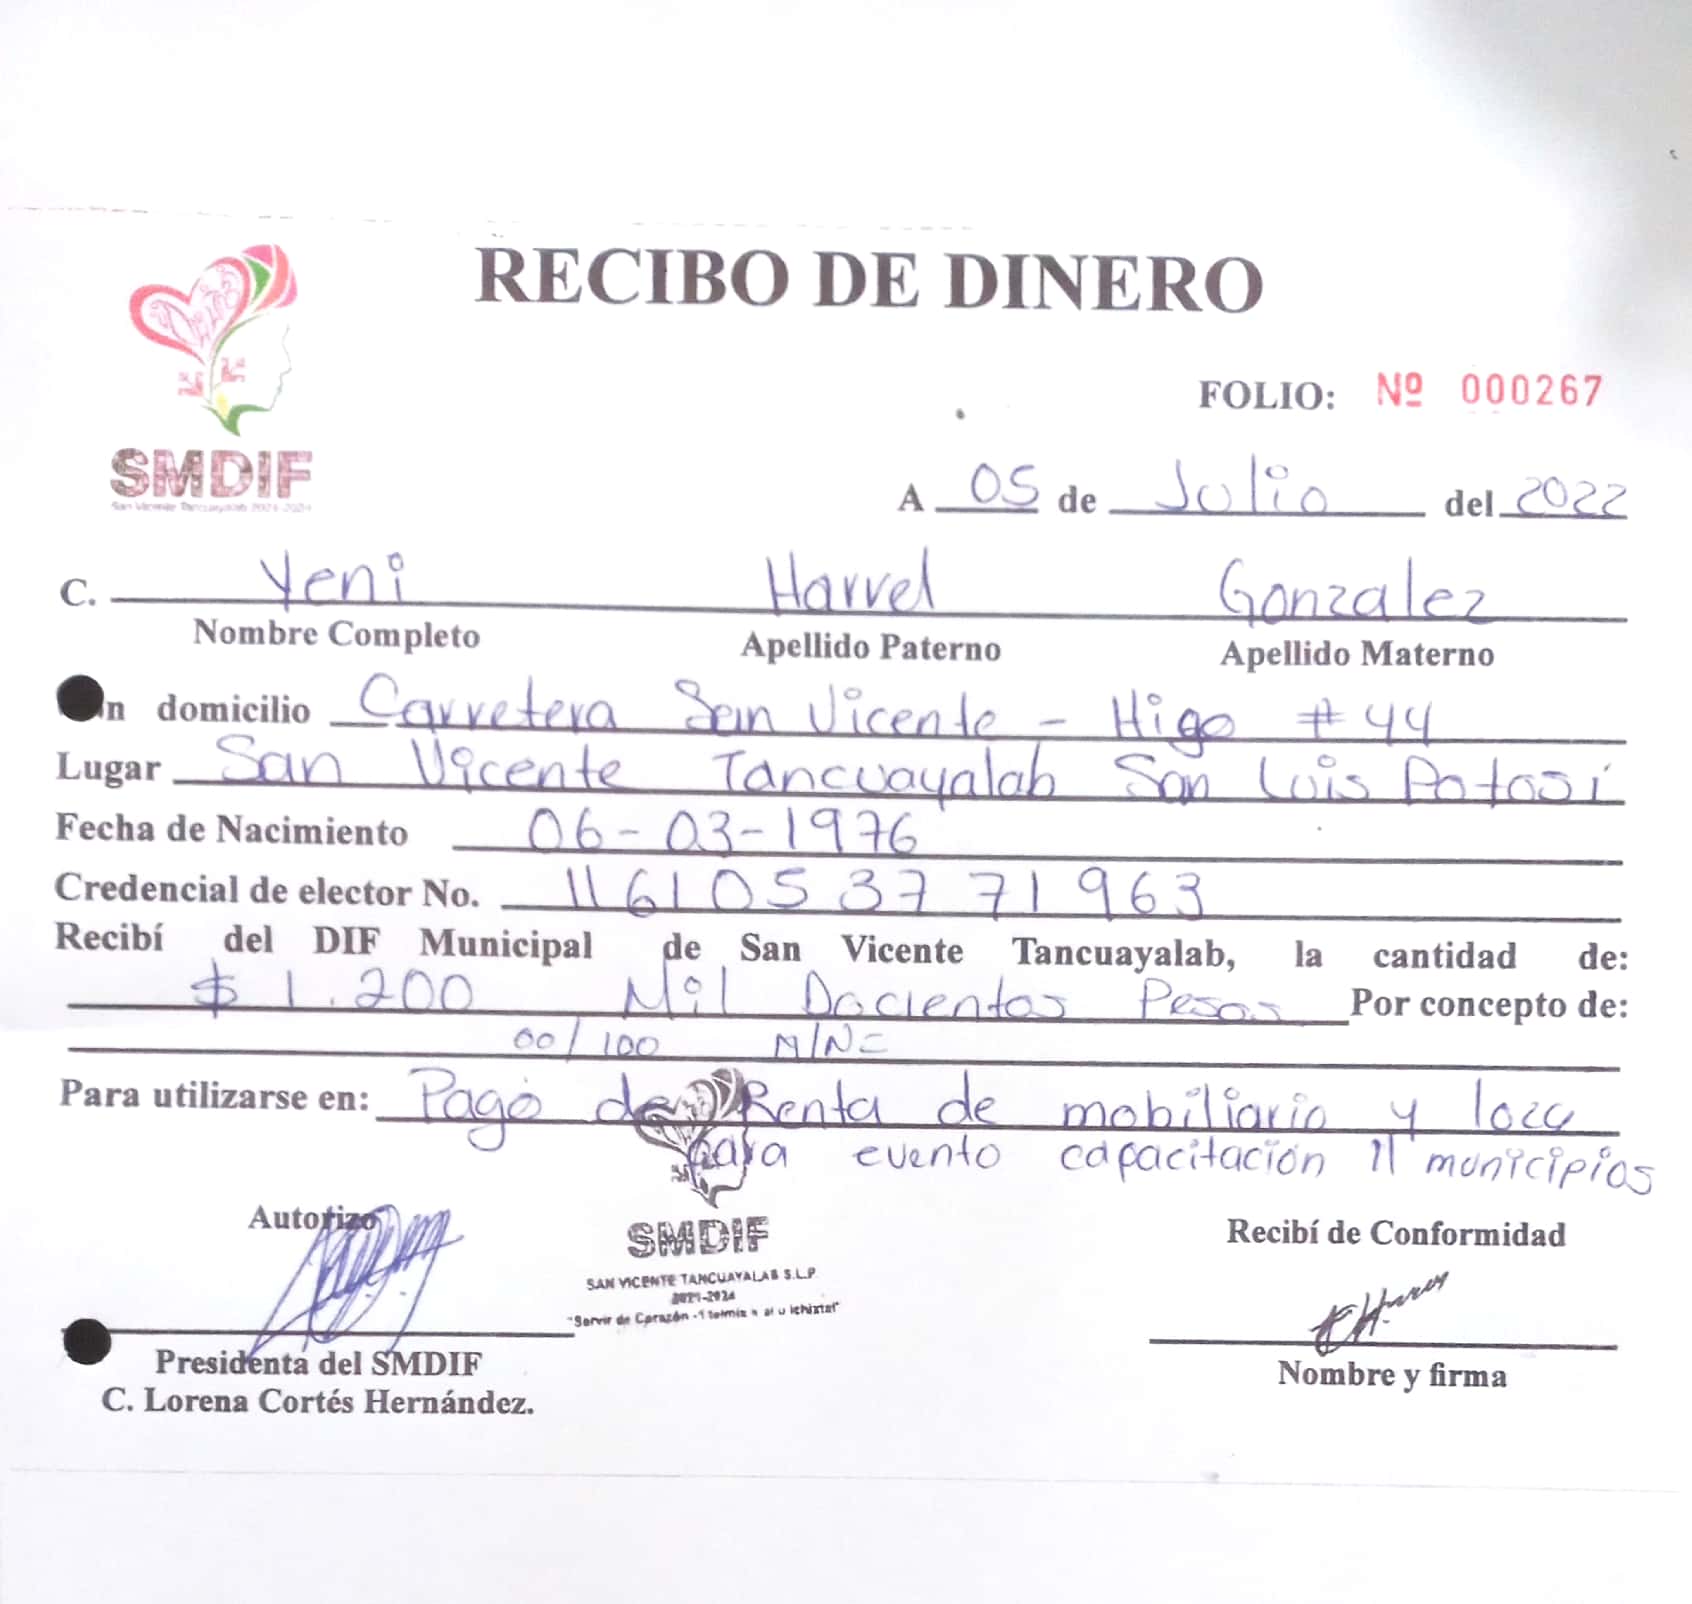 RECIBO DE DINERO
FOLIO: Nº 000267
SMDIF
San Vicente Tancuayalab 2021-2024
A 05 de Julio del 2022
C. Yeni Harvel Gonzalez
Nombre Completo Apellido Paterno Apellido Materno
n domicilio Carretera San Vicente - Higo #44
Lugar San Vicente Tancuayalab San Luis Potosí
Fecha de Nacimiento 06-03-1976
Credencial de elector No. 1161053771963
Recibí del DIF Municipal de San Vicente Tancuayalab, la cantidad de:
$ 1.200 Mil Docientos Pesos Por concepto de:
00/100 M/N=
Para utilizarse en: Pago de Renta de mobiliario y loza
para evento capacitación 11 municipios
Autorizo
Recibí de Conformidad
SMDIF
SAN VICENTE TANCUAYALAB S.L.P.
2021-2024
"Servir de Corazón -
Presidenta del SMDIF
C. Lorena Cortés Hernández.
Nombre y firma